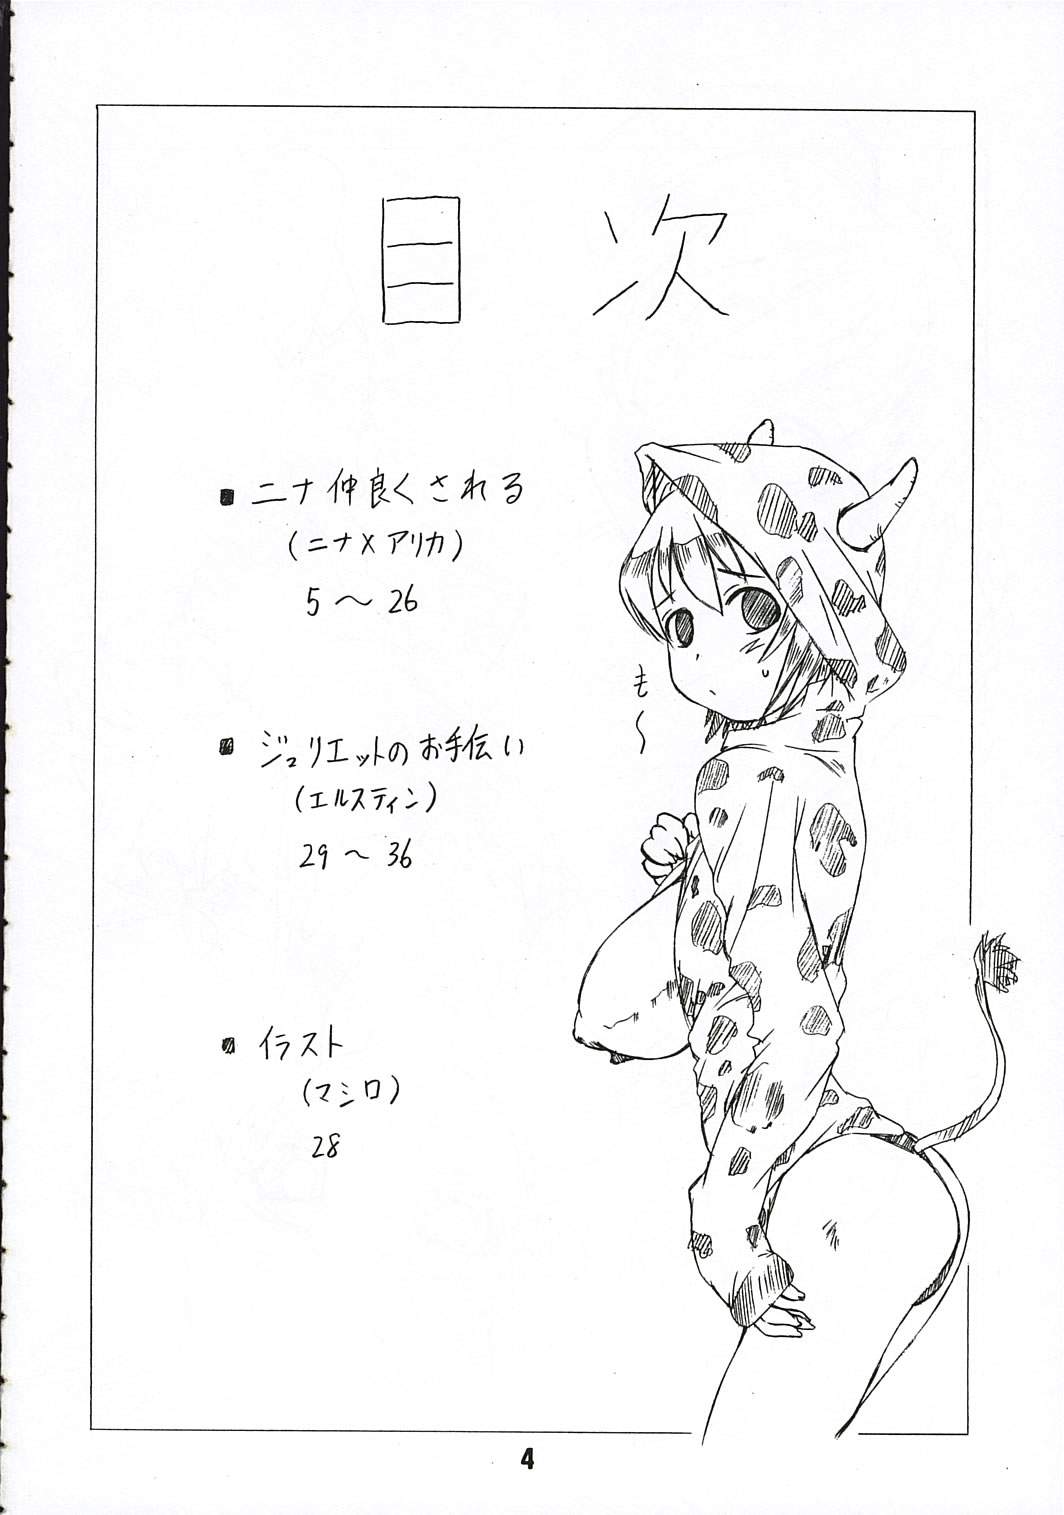 目次
■ニナ仲良くされる
(ニナ×アリカ)
5～26
も～
■ジュリエットのお手伝い
(エルスティン)
29～36
■イラスト
(マシロ)
28
4